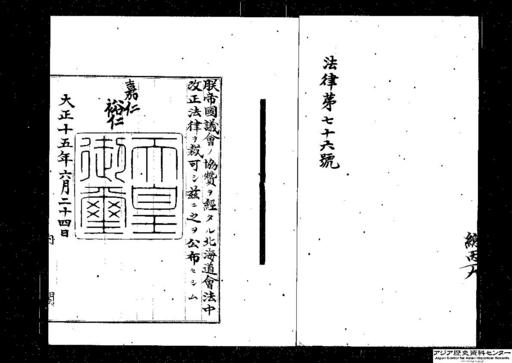 法律第七十六號
朕帝國議會ノ協贊ヲ經タル北海道會法中
改正法律ヲ裁可シ茲ニ之ヲ公布セシム
嘉仁
裕仁
天皇
御璽
大正十五年六月二十四日
アジア歴史資料センター
Japan Center for Asian Historical Records